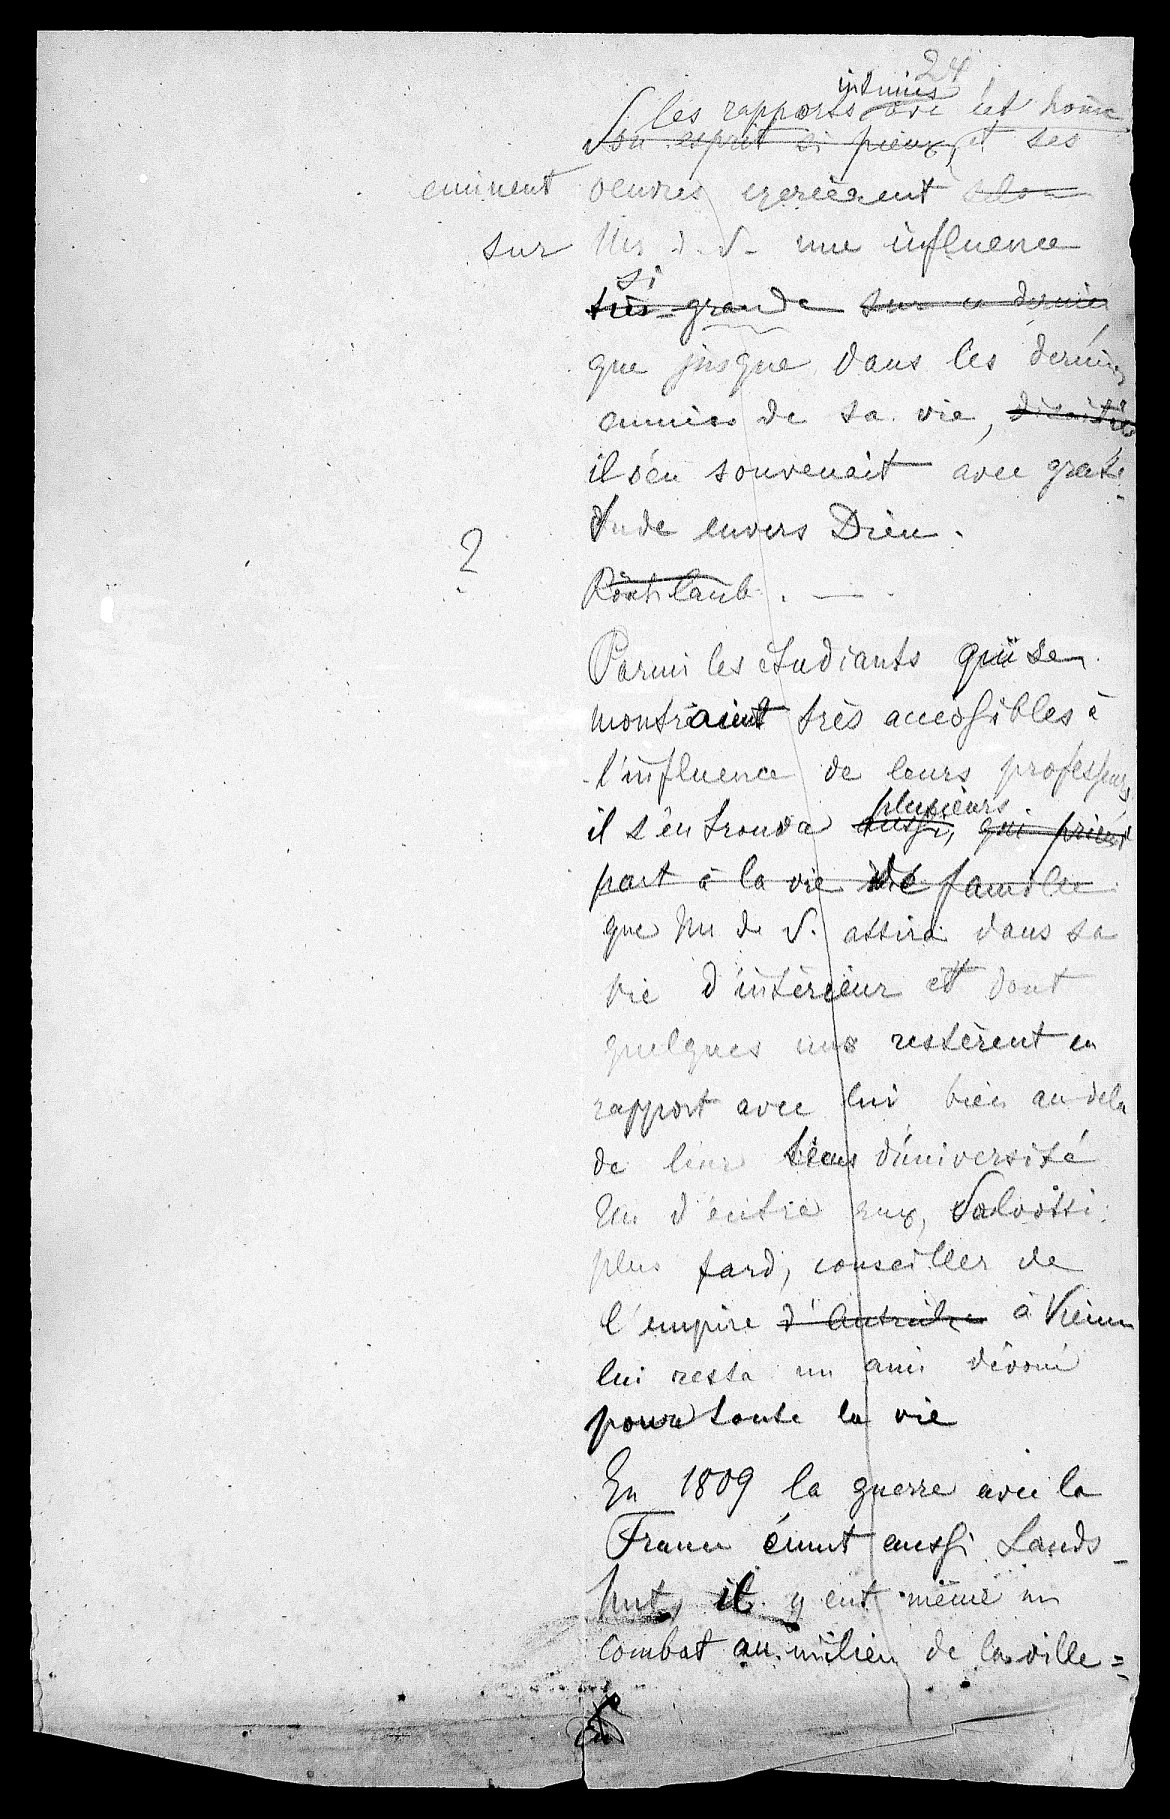 24
intimes
les rapports avec cet homme
Son esprit si pieux, et ses
eminent
oeuvres exercèrent
sur
Mr d. S. une influence
si
très grande sur ce dernier
que jusque dans les dernières
années de sa vie,
il s'en souvenait avec grati-
tude envers Dieu.
?
Röschlaub. —
Parmi les étudiants qui se
montraient très accessibles à
l'influence de leurs professeurs
plusieurs
il s'en trouva aussi, qui prirent
part à la vie de famille
que Mr de S. attira dans sa
vie d'intérieur et dont
quelques uns restèrent en
rapport avec lui bien au dela
de leur temps d'université
Un d'entre eux, Salvotti
plus tard, conseiller de
l'empire d'Autriche à Vienne
lui resta un ami dévoué
pour toute la vie
En 1809 la guerre avec la
France émut aussi Lands-
hut, il y eut même un
combat au milieu de la ville=